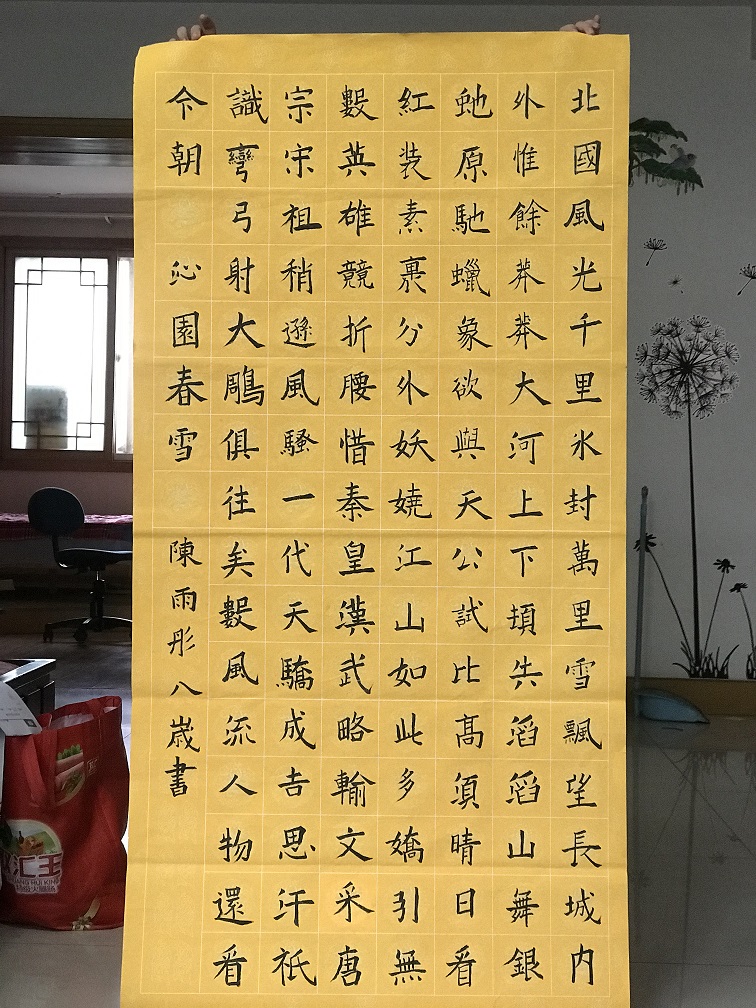 北國風光千里氷封萬里雪飄望長城内
外惟餘莽莽大河上下頓失滔滔山舞銀
虵原馳蠟象欲與天公試比髙須晴日看
紅装素裹分外妖嬈江山如此多嬌引無
數英雄競折腰惜秦皇漢武略輸文采唐
宗宋祖稍遜風騷一代天驕成吉思汗祇
識彎弓射大鵰俱往矣數風流人物還看
今朝 沁園春雪 陳雨彤八歲書
汇王